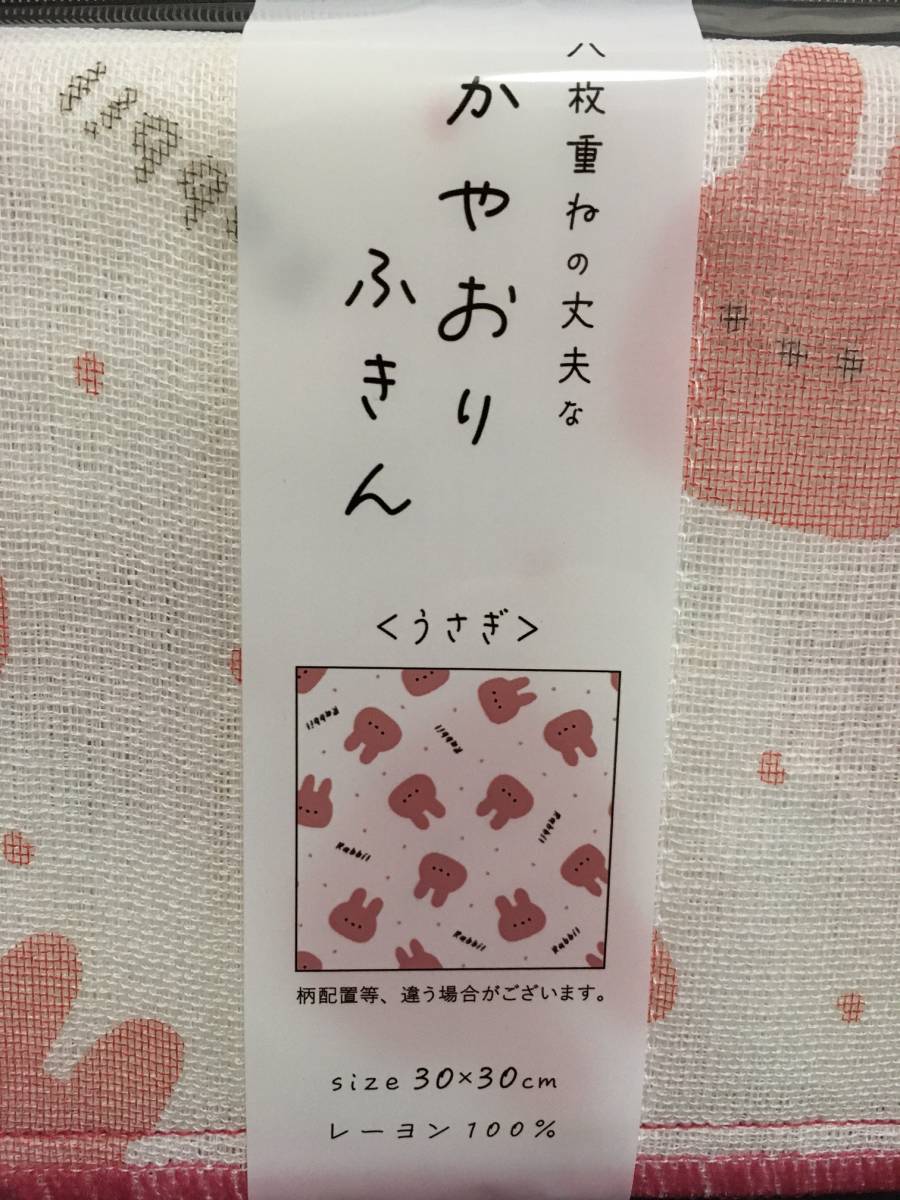 八枚重ねの丈夫な
かやおり
ふきん
＜うさぎ＞
Rabbit
Rabbit
Rabbit
Rabbit
Rabbit
Rabbit
柄配置等、違う場合がございます。
size 30×30cm
レーヨン100%